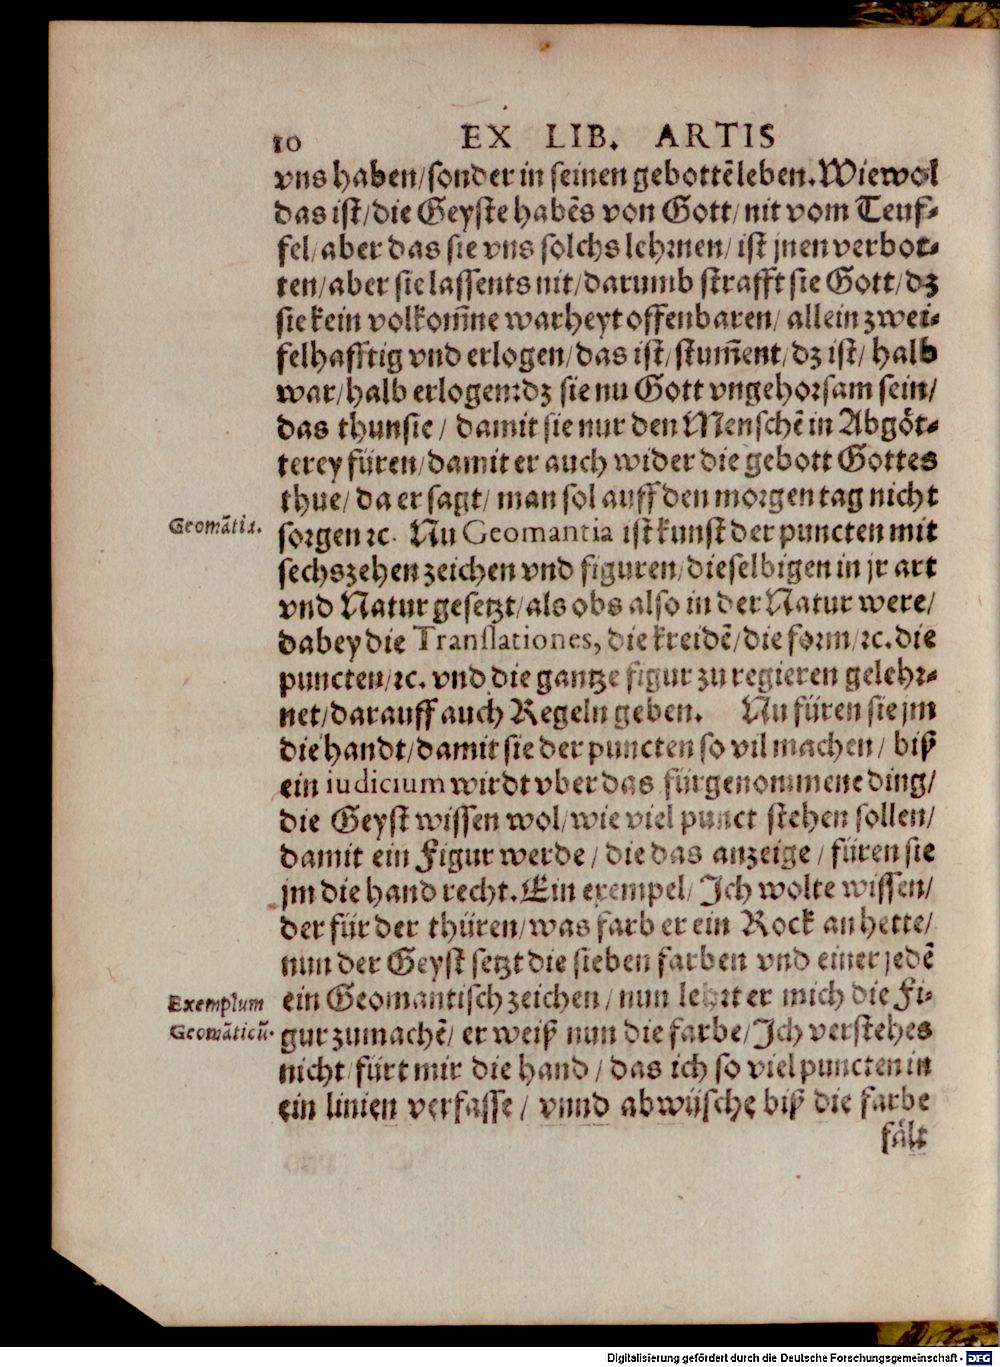 10 EX LIB. ARTIS
vns haben/sonder in seinen gebottẽ leben. Wiewol
das ist/die Geyste habẽs von Gott/nit vom Teuf⸗
fel/aber das sie vns solchs lehrnen/ist jnen verbot⸗
ten/aber sie lassents nit/darumb strafft sie Gott/dz
sie kein volkom̃ne warheyt offenbaren/allein zwei⸗
felhafftig vnd erlogen/das ist/stum̃ent/dz ist/halb
war/halb erlogen:dz sie nu Gott vngehorsam sein/
das thun sie/damit sie nur den Menschẽ in Abgöt⸗
terey füren/damit er auch wider die gebott Gottes
thue/da er sagt/man sol auff den morgen tag nicht
Geomãtia.
sorgen ꝛc. Nu Geomantia ist kunst der puncten mit
sechszehen zeichen vnd figuren/dieselbigen in jr art
vnd Natur gesetzt/als obs also in der Natur were/
dabey die Translationes, die kreidẽ/die form/ꝛc. die
puncten/ꝛc. vnd die gantze figur zu regieren gelehr⸗
net/darauff auch Regeln geben. Nu füren sie jm
die handt/damit sie der puncten so vil machen/biß
ein iudicium wirdt vber das fürgenommene ding/
die Geyst wissen wol/wie viel punct stehen sollen/
damit ein Figur werde/die das anzeige/füren sie
jm die hand recht. Ein exempel/Ich wolte wissen/
der für der thüren/was farb er ein Rock an hette/
nun der Geyst setzt die sieben farben vnd einer jedẽ
Exemplum
ein Geomantisch zeichen/nun lehrt er mich die Fi⸗
Geomãticũ.
gur zumachẽ/er weiß nun die farbe/Ich verstehes
nicht/fürt mir die hand/das ich so viel puncten in
ein linien verfasse/vnnd abwüsche biß die farbe
fält
Digitalisierung gefördert durch die Deutsche Forschungsgemeinschaft - DFG